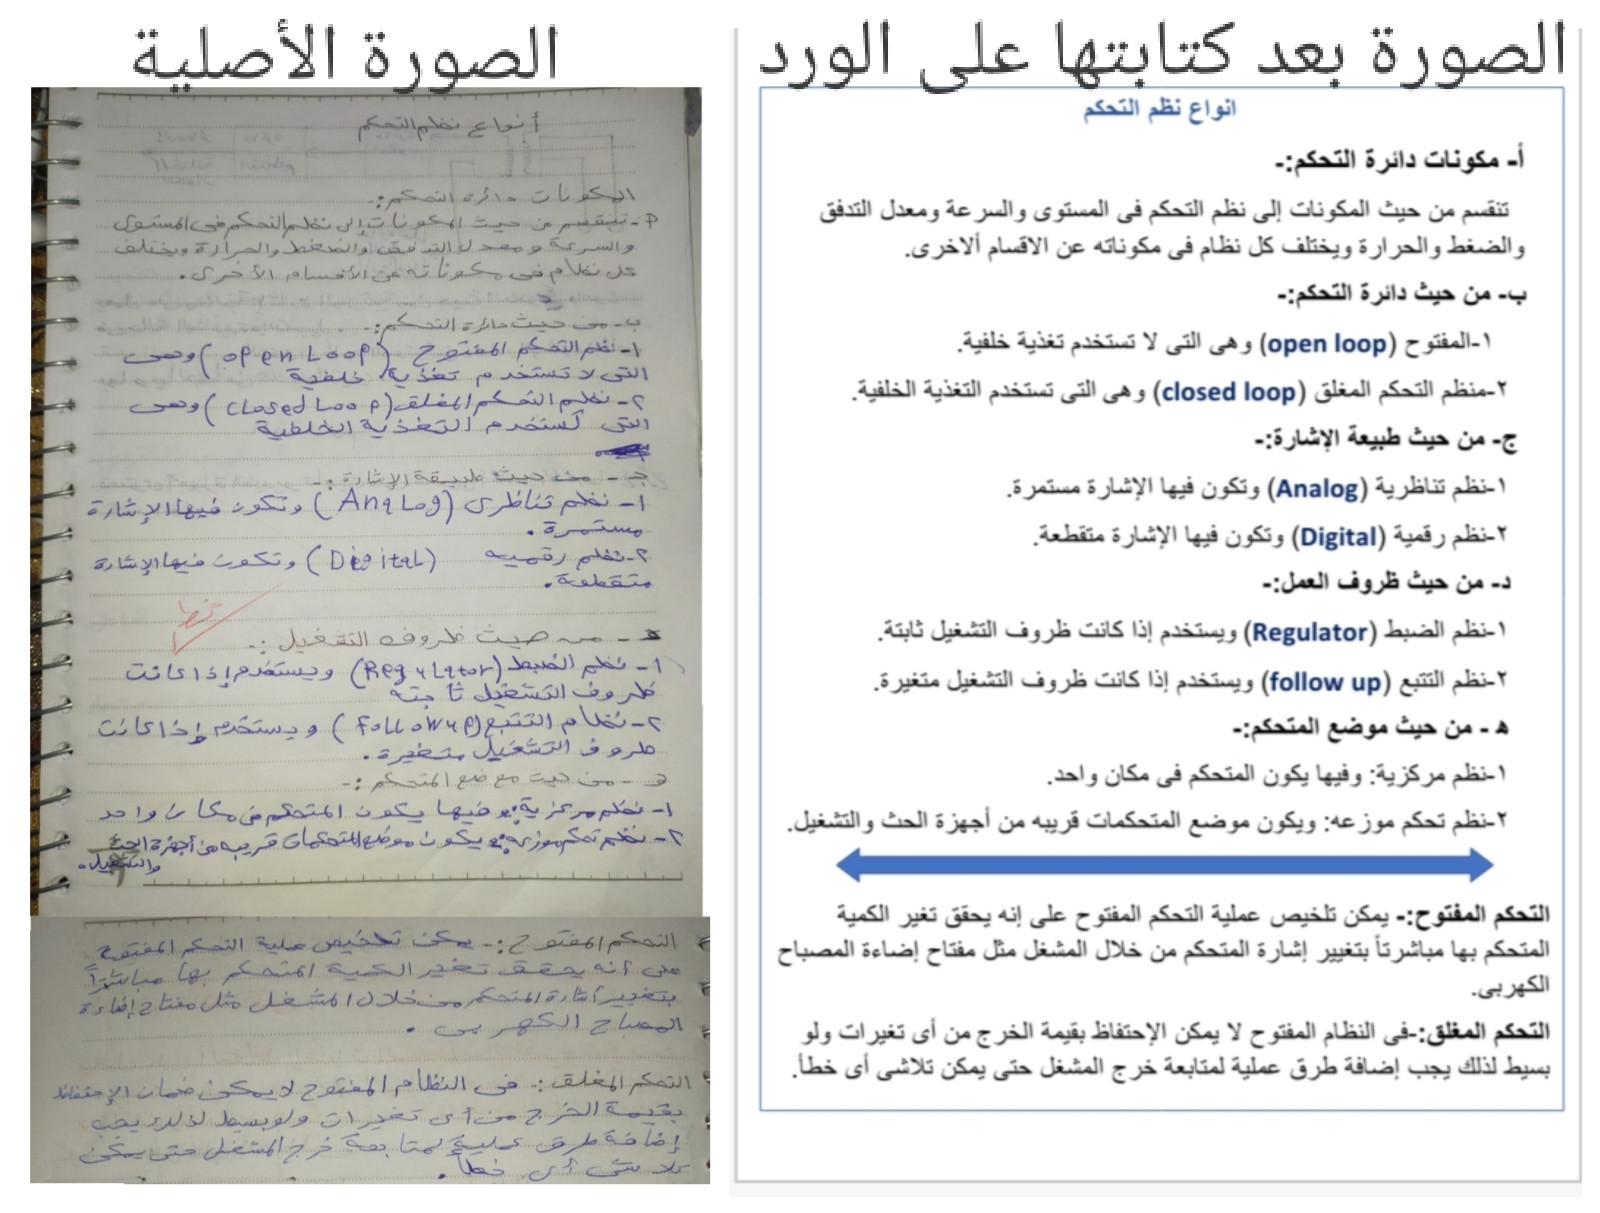 الصورة الأصلية
أنواع نظم التحكم
المكونات دائرة التحكم:-
أ- تنقسم من حيث المكونات إلى نظم التحكم فى المستوى
والسرعة ومعدل التدفق والضغط والحرارة ويختلف
كل نظام فى مكوناته عن الأقسام الأخرى.
ب- من حيث دائرة التحكم:-
١- نظم التحكم المفتوح (open Loop) وهى
التى لا تستخدم تغذية خلفية
٢- نظم التحكم المغلق (closed Loop) وهى
التى تستخدم التغذية الخلفية
ج- من حيث طبيعة الإشارة:-
١- نظم تناظرى (AnaLog) وتكون فيها الإشارة
مستمرة.
٢- نظم رقميه (Digital) وتكون فيها الإشارة
متقطعة.
- من حيث ظروف التشغيل:-
١- نظم الضبط (ReguLator) ويستخدم إذا كانت
ظروف التشغيل ثابته
٢- نظام التتبع (foLLow up) ويستخدم إذا كانت
ظروف التشغيل متغيرة.
- من حيث موضع المتحكم:-
١- نظم مركزية: وفيها يكون المتحكم فى مكان واحد
٢- نظم تحكم موزعه: ويكون موضع المتحكمات قريبه من أجهزة الحث
والتشغيل.
التحكم المفتوح:- يمكن تلخيص عملية التحكم المفتوح
على أنه يحقق تغير الكمية المتحكم بها مباشرتاً
بتغيير إشارة المتحكم من خلال المشغل مثل مفتاح إضاءة
المصباح الكهربى.
التحكم المغلق:- فى النظام المفتوح لا يمكن ضمان الإحتفاظ
بقيمة الخرج من أى تغيرات ولو بسيط لذلك يجب
إضافة طرق عملية لمتابعة خرج المشغل حتى يمكن
تلاشى أى خطأ.
الصورة بعد كتابتها على الورد
انواع نظم التحكم
أ- مكونات دائرة التحكم:-
تنقسم من حيث المكونات إلى نظم التحكم فى المستوى والسرعة ومعدل التدفق
والضغط والحرارة ويختلف كل نظام فى مكوناته عن الاقسام ألاخرى.
ب- من حيث دائرة التحكم:-
١-المفتوح (open loop) وهى التى لا تستخدم تغذية خلفية.
٢-منظم التحكم المغلق (closed loop) وهى التى تستخدم التغذية الخلفية.
ج- من حيث طبيعة الإشارة:-
١-نظم تناظرية (Analog) وتكون فيها الإشارة مستمرة.
٢-نظم رقمية (Digital) وتكون فيها الإشارة متقطعة.
د- من حيث ظروف العمل:-
١-نظم الضبط (Regulator) ويستخدم إذا كانت ظروف التشغيل ثابتة.
٢-نظم التتبع (follow up) ويستخدم إذا كانت ظروف التشغيل متغيرة.
ه - من حيث موضع المتحكم:-
١-نظم مركزية: وفيها يكون المتحكم فى مكان واحد.
٢-نظم تحكم موزعه: ويكون موضع المتحكمات قريبه من أجهزة الحث والتشغيل.
التحكم المفتوح:- يمكن تلخيص عملية التحكم المفتوح على إنه يحقق تغير الكمية
المتحكم بها مباشرتاً بتغيير إشارة المتحكم من خلال المشغل مثل مفتاح إضاءة المصباح
الكهربى.
التحكم المغلق:-فى النظام المفتوح لا يمكن الإحتفاظ بقيمة الخرج من أى تغيرات ولو
بسيط لذلك يجب إضافة طرق عملية لمتابعة خرج المشغل حتى يمكن تلاشى أى خطأ.